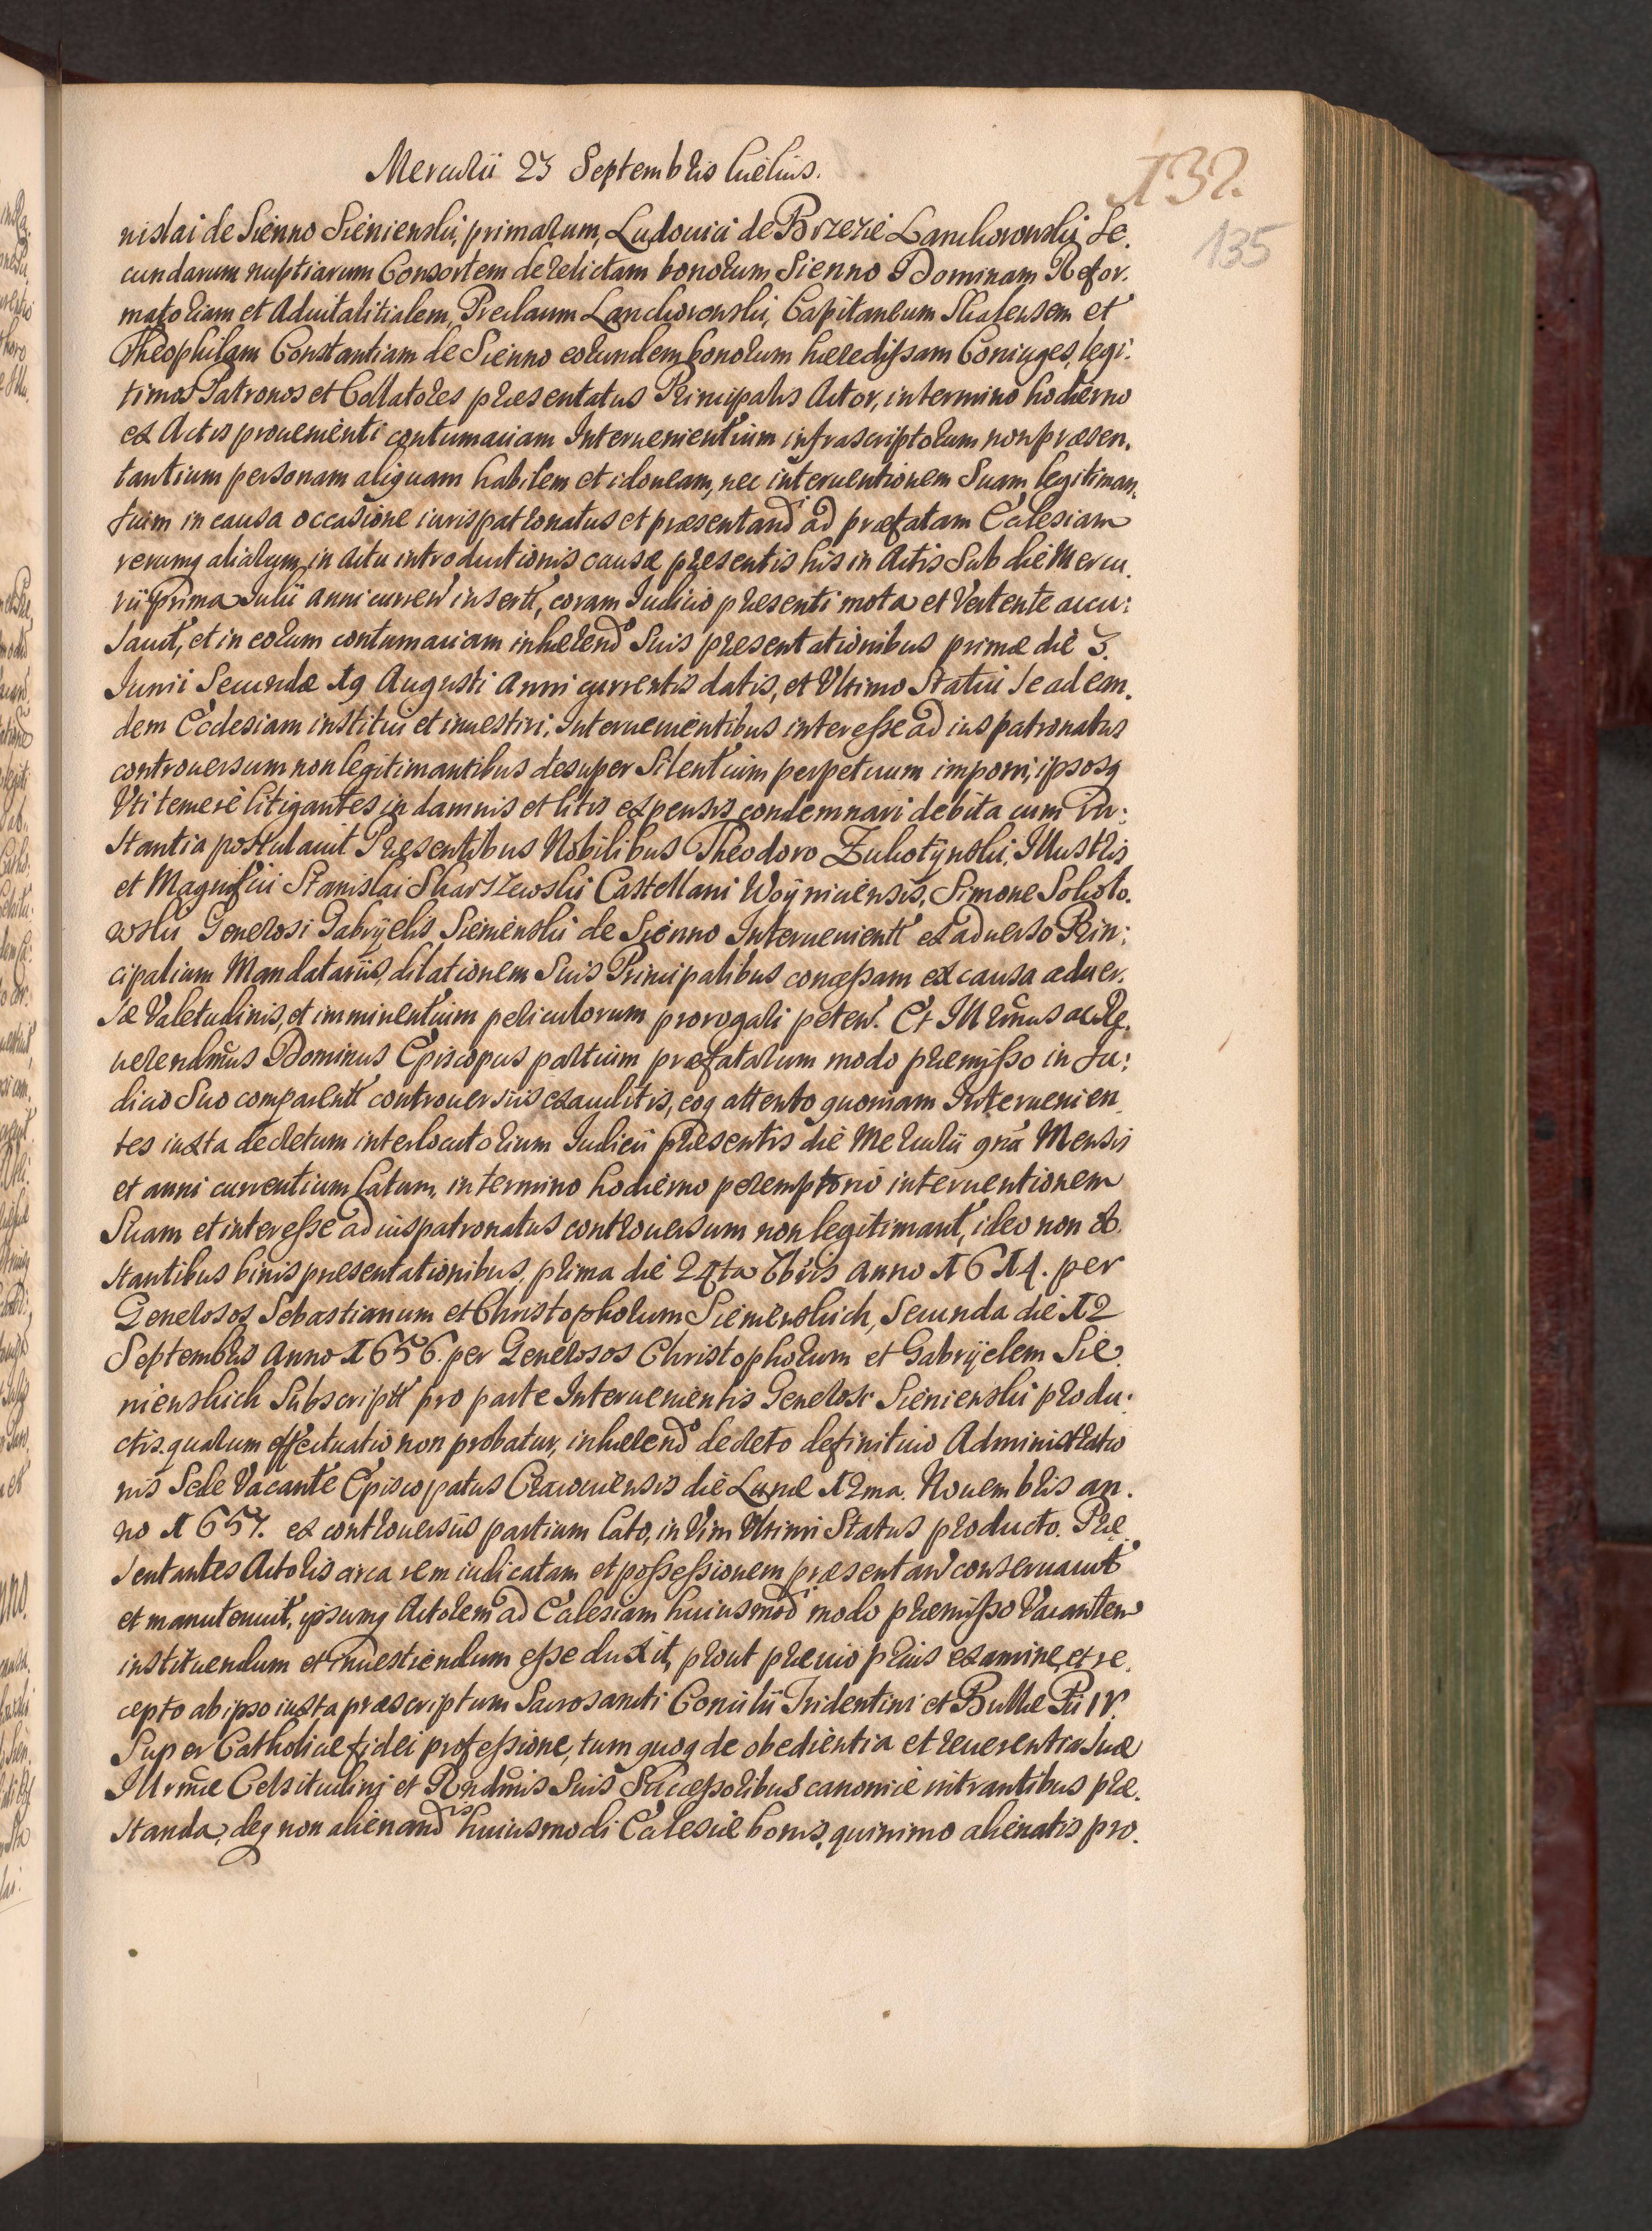 Mercurii 23 Septembris Cielcis.
132.
135
nislai de Sienno Sienienski, primarum, Ludovici de Brzezie Lanckoronski Se,
cundarum nuptiarum Consortem derelictam bonorum Sienno Dominam Refor,
matoriam et Aduitalitialem, Preclarum Lanckoronski, Capitaneum Skalensem et
Theophilam Constantiam de Sienno eorundem bonorum hæredissam Coniuges, legi:
timos Patronos et Collatores præsentatus Principalis Actor, in termino hodierno
ex Actis proueniènti contumaciam Interuenientium infrascriptorum non præsen,
tantium personam aliquam habilem et idoneam, nec interuentionem Suam legitiman,
tium in causa occasione iurispatronatus et præsentand ad præfatam Ecclesiam
rerumq aliarum, in actu introductionis causæ præsentis his in Actis Sub die Mercu,
rii prima Julii anni curren insertt, coram Judicio præsenti mota et Vertente accu:
sauit, et in eorum contumaciam inhærendo Suis præsentationibus primæ die 3.
Junii Secundæ 19 Augusti Anni currentis datis, et Vltimo Statui se ad ean,
dem Ecclesiam institui et inuestiri, Interuenientibus interesse ad ius patronatus
controuersum non legitimantibus desuper Silentium perpetuum imponi, ipsosq
Vti temerè litigantes in damnis et litis expensis condemnari debita cum In:
stantia postulauit Præsentibus Nobilibus Theodoro Zukotÿnski, Illustris
et Magnifici Stanislai Skarszewski Castellani Woÿnicensis, Simone Sokoło,
wski Generosi Gabryelis Sienienski de Sienno Interuenientt ex aduerso Prin:
cipalium Mandatariis, dilationem Suis Principalibus concessam ex causa aduer,
sæ Valetudinis, et imminentium periculorum prorogari peten. Et Illrmus ac Re,
uerendmus Dominus Episcopus partium præfatarum modo præmisso in Ju:
dicio Suo comparentt controuersiis exauditis, eoq attento quoniam Interuenien
tes iuxta decretum interlocutorium Judicii præsentis die Mercurii 9na Mensis
et anni currentium latum, in termino hodierno peremptorio interuentionem
Suam et interesse ad iuspatronatus controuersum non legitimant, ideo non ob
stantibus binis præsentationibus, prima die 24ta 7bris anno 1614. per
Generosos Sebastianum et Christophorum Sienienskich, Secunda die 12
Septembris Anno 1656. per Generosos Christophorum et Gabryelem Sie,
nienskich Subscriptt pro parte Interuenientis Generosi Sienienski produ:
ctis. quarum effectuatio non probatur, inhærendo decreto definitiuo Administratio
nis Sede Vacante Episcopatus Cracouiensis die Lunæ 12ma. Nouembris an,
no 1657. ex controuersiis partium lato, in Vim Vltimi Status producto. Præ
sentantes Actoris circa rem iudicatam et possessionem præsentan conseruauit
et manutenuit, ipsumq Actorem ad Ecclesiam huiusmodi modo præmisso Vacantem
instituendum et inuestiendum esse duxit, prout præuio prius examine, et re,
cepto ab ipso iuxta præscriptum Sacrosancti Concilii Tridentini et Bullæ Pii IV.
Super Catholicæ fidei professione, tum quoq de obedientia et reuerentia Suæ
Illrmæ Celsitudini et Rndmis Suis Successoribus canonicè intrantibus præ,
standa, deq non alienandis huiusmodi Ecclesiæ bonis, quinimo alienatis pro,